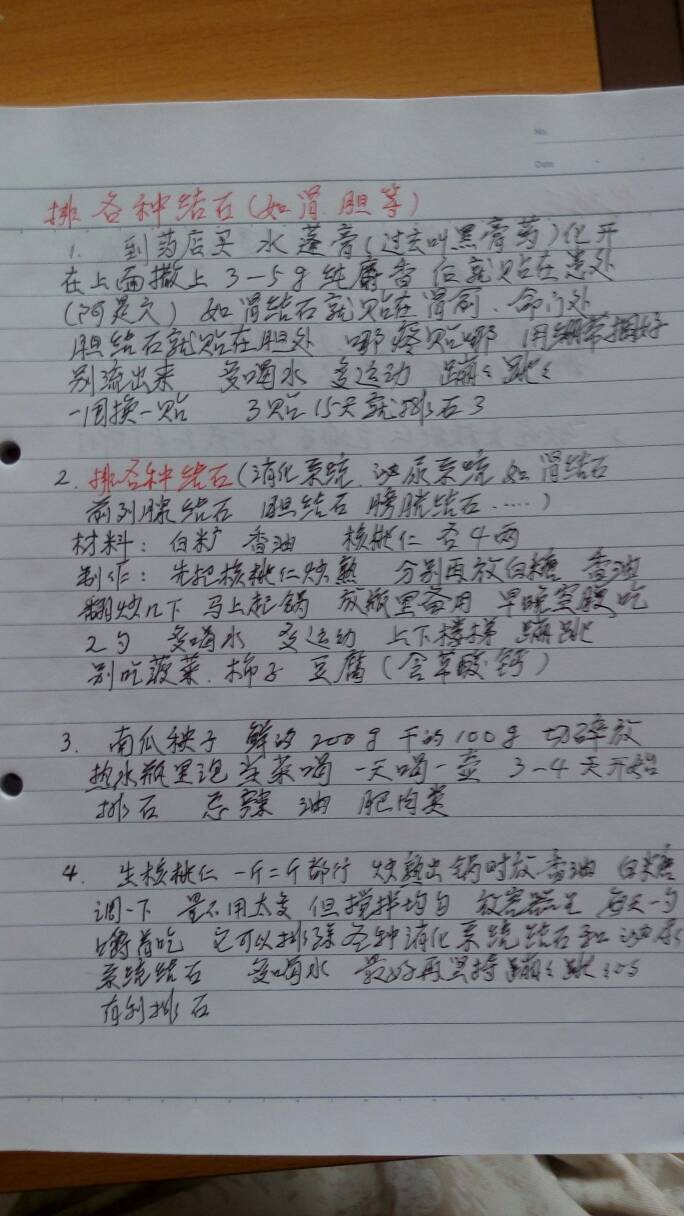 No.
Date
排各种结石(如肾.胆等)
1. 到药店买 水蓬膏(过去叫黑膏药)化开
在上面撒上 3—5g 纯麝香 后就贴在患处
(阿是穴) 如肾结石就贴在肾俞、命门处
胆结石就贴在胆处 哪疼贴哪 用绷带捆好
别流出来 多喝水 多运动 蹦蹦跳跳
一周换一贴 3贴15天就排石了
2. 排各种结石(消化系统.泌尿系统 如肾结石
前列腺结石 胆结石 膀胱结石……)
材料: 白糖 香油 核桃仁 各4两
制作: 先把核桃仁炒熟 分别再放白糖 香油
翻炒几下 马上起锅 放瓶里备用 早晚空腹吃
2勺 多喝水 多运动 上下楼梯 蹦跳
别吃菠菜.柿子 豆腐(含草酸钙)
3. 南瓜秧子 鲜的200g 干的100g 切碎放
热水瓶里泡 当茶喝 一天喝一壶 3—4天开始
排石 忌辣 油 肥肉类
4. 生核桃仁 一斤二斤都行 炒熟出锅时放香油 白糖
调一下 量不用太多 但搅拌均匀 放容器里 每天一勺
嚼着吃 它可以排除各种消化系统结石和泌尿
系统结石 多喝水 最好再坚持蹦蹦跳跳
有利排石